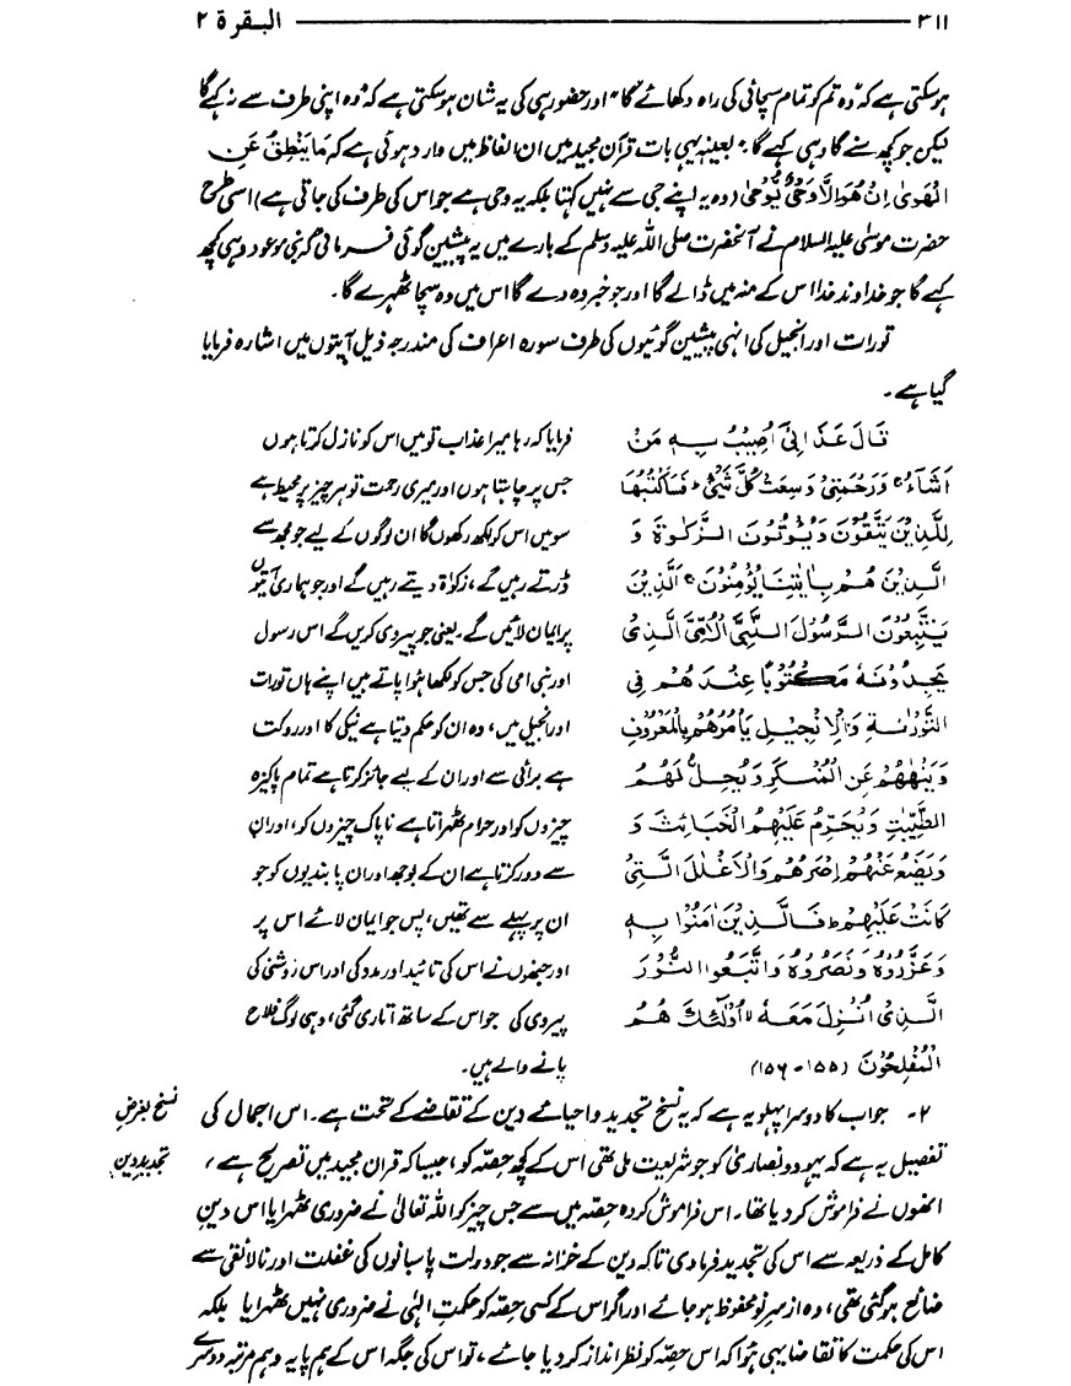 ۳۱۱ البقرة ۲
ہوسکتی ہے کہ "وہ تم کو تمام سچائی کی راہ دکھائے گا" اور حضور ہی کی یہ شان ہوسکتی ہے کہ "وہ اپنی طرف سے نہ کہے گا
لیکن جو کچھ سنے گا وہی کہے گا" بعینہٖ یہی بات قرآن مجید میں ان الفاظ میں وارد ہوئی ہے کہ مَا یَنْطِقُ عَنِ
الْهَوٰی اِنْ هُوَ اِلَّا وَحْیٌ یُّوْحٰی (وہ یہ اپنے جی سے نہیں کہتا بلکہ یہ وحی ہے جو اس کی طرف کی جاتی ہے) اسی طرح
حضرت موسیٰ علیہ السلام نے آنحضرت صلی اللہ علیہ وسلم کے بارے میں یہ پیشین گوئی فرمائی کہ نبی موعود وہی کچھ
کہے گا جو خداوند خدا اس کے منہ میں ڈالے گا اور جو خبر وہ دے گا اس میں وہ سچا ٹھہرے گا۔
تورات اور انجیل کی انہی پیشین گوئیوں کی طرف سورہ اعراف کی مندرجہ ذیل آیتوں میں اشارہ فرمایا
گیا ہے۔
قَالَ عَذَابِیْٓ اُصِیْبُ بِهٖ مَنْ
اَشَآءُ ۚ وَرَحْمَتِیْ وَسِعَتْ كُلَّ شَیْءٍ ؕ فَسَاَكْتُبُهَا
لِلَّذِیْنَ یَتَّقُوْنَ وَیُؤْتُوْنَ الزَّكٰوةَ وَ
الَّذِیْنَ هُمْ بِاٰیٰتِنَا یُؤْمِنُوْنَ ۚ اَلَّذِیْنَ
یَتَّبِعُوْنَ الرَّسُوْلَ النَّبِیَّ الْاُمِّیَّ الَّذِیْ
یَجِدُوْنَهٗ مَكْتُوْبًا عِنْدَ هُمْ فِی
التَّوْرٰىةِ وَالْاِنْجِیْلِ یَاْمُرُهُمْ بِالْمَعْرُوْفِ
وَیَنْهٰهُمْ عَنِ الْمُنْكَرِ وَیُحِلُّ لَهُمُ
الطَّیِّبٰتِ وَیُحَرِّمُ عَلَیْهِمُ الْخَبَائِثَ وَ
وَیَضَعُ عَنْهُمْ اِصْرَهُمْ وَالْاَغْلٰلَ الَّتِیْ
كَانَتْ عَلَیْهِمْ ؕ فَالَّذِیْنَ اٰمَنُوْا بِهٖ
وَعَزَّرُوْهُ وَنَصَرُوْهُ وَاتَّبَعُوا النُّوْرَ
الَّذِیْ اُنْزِلَ مَعَهٗ ۙ اُولٰٓئِكَ هُمُ
الْمُفْلِحُوْنَ (۱۵۵-۱۵۶)
فرمایا کہ رہا میرا عذاب تو میں اس کو نازل کرتا ہوں
جس پر چاہتا ہوں اور میری رحمت تو ہر چیز پر محیط ہے
سو میں اس کو لکھ رکھوں گا ان لوگوں کے لیے جو مجھ سے
ڈرتے رہیں گے، زکوٰۃ دیتے رہیں گے اور جو ہماری آیتوں
پر ایمان لائیں گے۔ یعنی جو پیروی کریں گے اس رسول
اور نبی امی کی جس کو لکھا ہوا پاتے ہیں اپنے ہاں تورات
اور انجیل میں، وہ ان کو حکم دیتا ہے نیکی کا اور روکتا
ہے برائی سے اور ان کے لیے جائز کرتا ہے تمام پاکیزہ
چیزوں کو اور حرام ٹھہراتا ہے ناپاک چیزوں کو، اور ان
سے دور کرتا ہے ان کے بوجھ اور ان پابندیوں کو جو
ان پر پہلے سے تھیں، پس جو ایمان لائے اس پر
اور جنھوں نے اس کی تائید اور مدد کی اور اس روشنی کی
پیروی کی جو اس کے ساتھ اتاری گئی، وہی لوگ فلاح
پانے والے ہیں۔
۲۔ جواب کا دوسرا پہلو یہ ہے کہ یہ نسخ تجدید و احیائے دین کے تقاضے کے تحت ہے۔ اس اجمال کی
نسخ بغرضِ
تفصیل یہ ہے کہ یہود و نصاریٰ کو جو شریعت ملی تھی اس کے کچھ حصّہ کو، جیسا کہ قرآن مجید میں تصریح ہے،
تجدیدِ دین
انھوں نے فراموش کر دیا تھا۔ اس فراموش کردہ حصّہ میں سے جس چیز کو اللہ تعالیٰ نے ضروری ٹھہرایا اس دینِ
کامل کے ذریعہ سے اس کی تجدید فرما دی تاکہ دین کے خزانہ سے جو دولت پاسبانوں کی غفلت اور نالائقی سے
ضائع ہو گئی تھی، وہ ازسرِنو محفوظ ہو جائے اور اگر اس کے کسی حصّہ کو حکمتِ الٰہی نے ضروری نہیں ٹھہرایا بلکہ
اس کی حکمت کا تقاضا یہی ہوا کہ اس حصّہ کو نظر انداز کر دیا جائے، تو اس کی جگہ اس کے ہم پایہ و ہم مرتبہ دوسرے